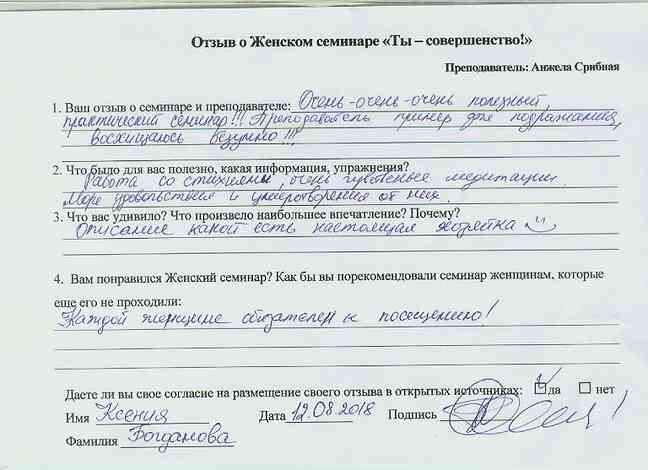 Отзыв о Женском семинаре «Ты – совершенство!»
Преподаватель: Анжела Срибная
1. Ваш отзыв о семинаре и преподавателе: Очень-очень-очень полезный,
практический семинар!!! Преподаватель пример для подражания,
восхищаюсь безумно!!!
2. Что было для вас полезно, какая информация, упражнения?
Работа со стихиями, очень чувственные медитации.
Море удовольствия и умиротворения от них.
3. Что вас удивило? Что произвело наибольшее впечатление? Почему?
Описание какой есть настоящая хозяйка
4. Вам понравился Женский семинар? Как бы вы порекомендовали семинар женщинам, которые
еще его не проходили:
Каждой женщине обязателен к посещению!
Даете ли вы свое согласие на размещение своего отзыва в открытых источниках: да нет
Имя Ксения Дата 12.08.2018 Подпись
Фамилия Богданова